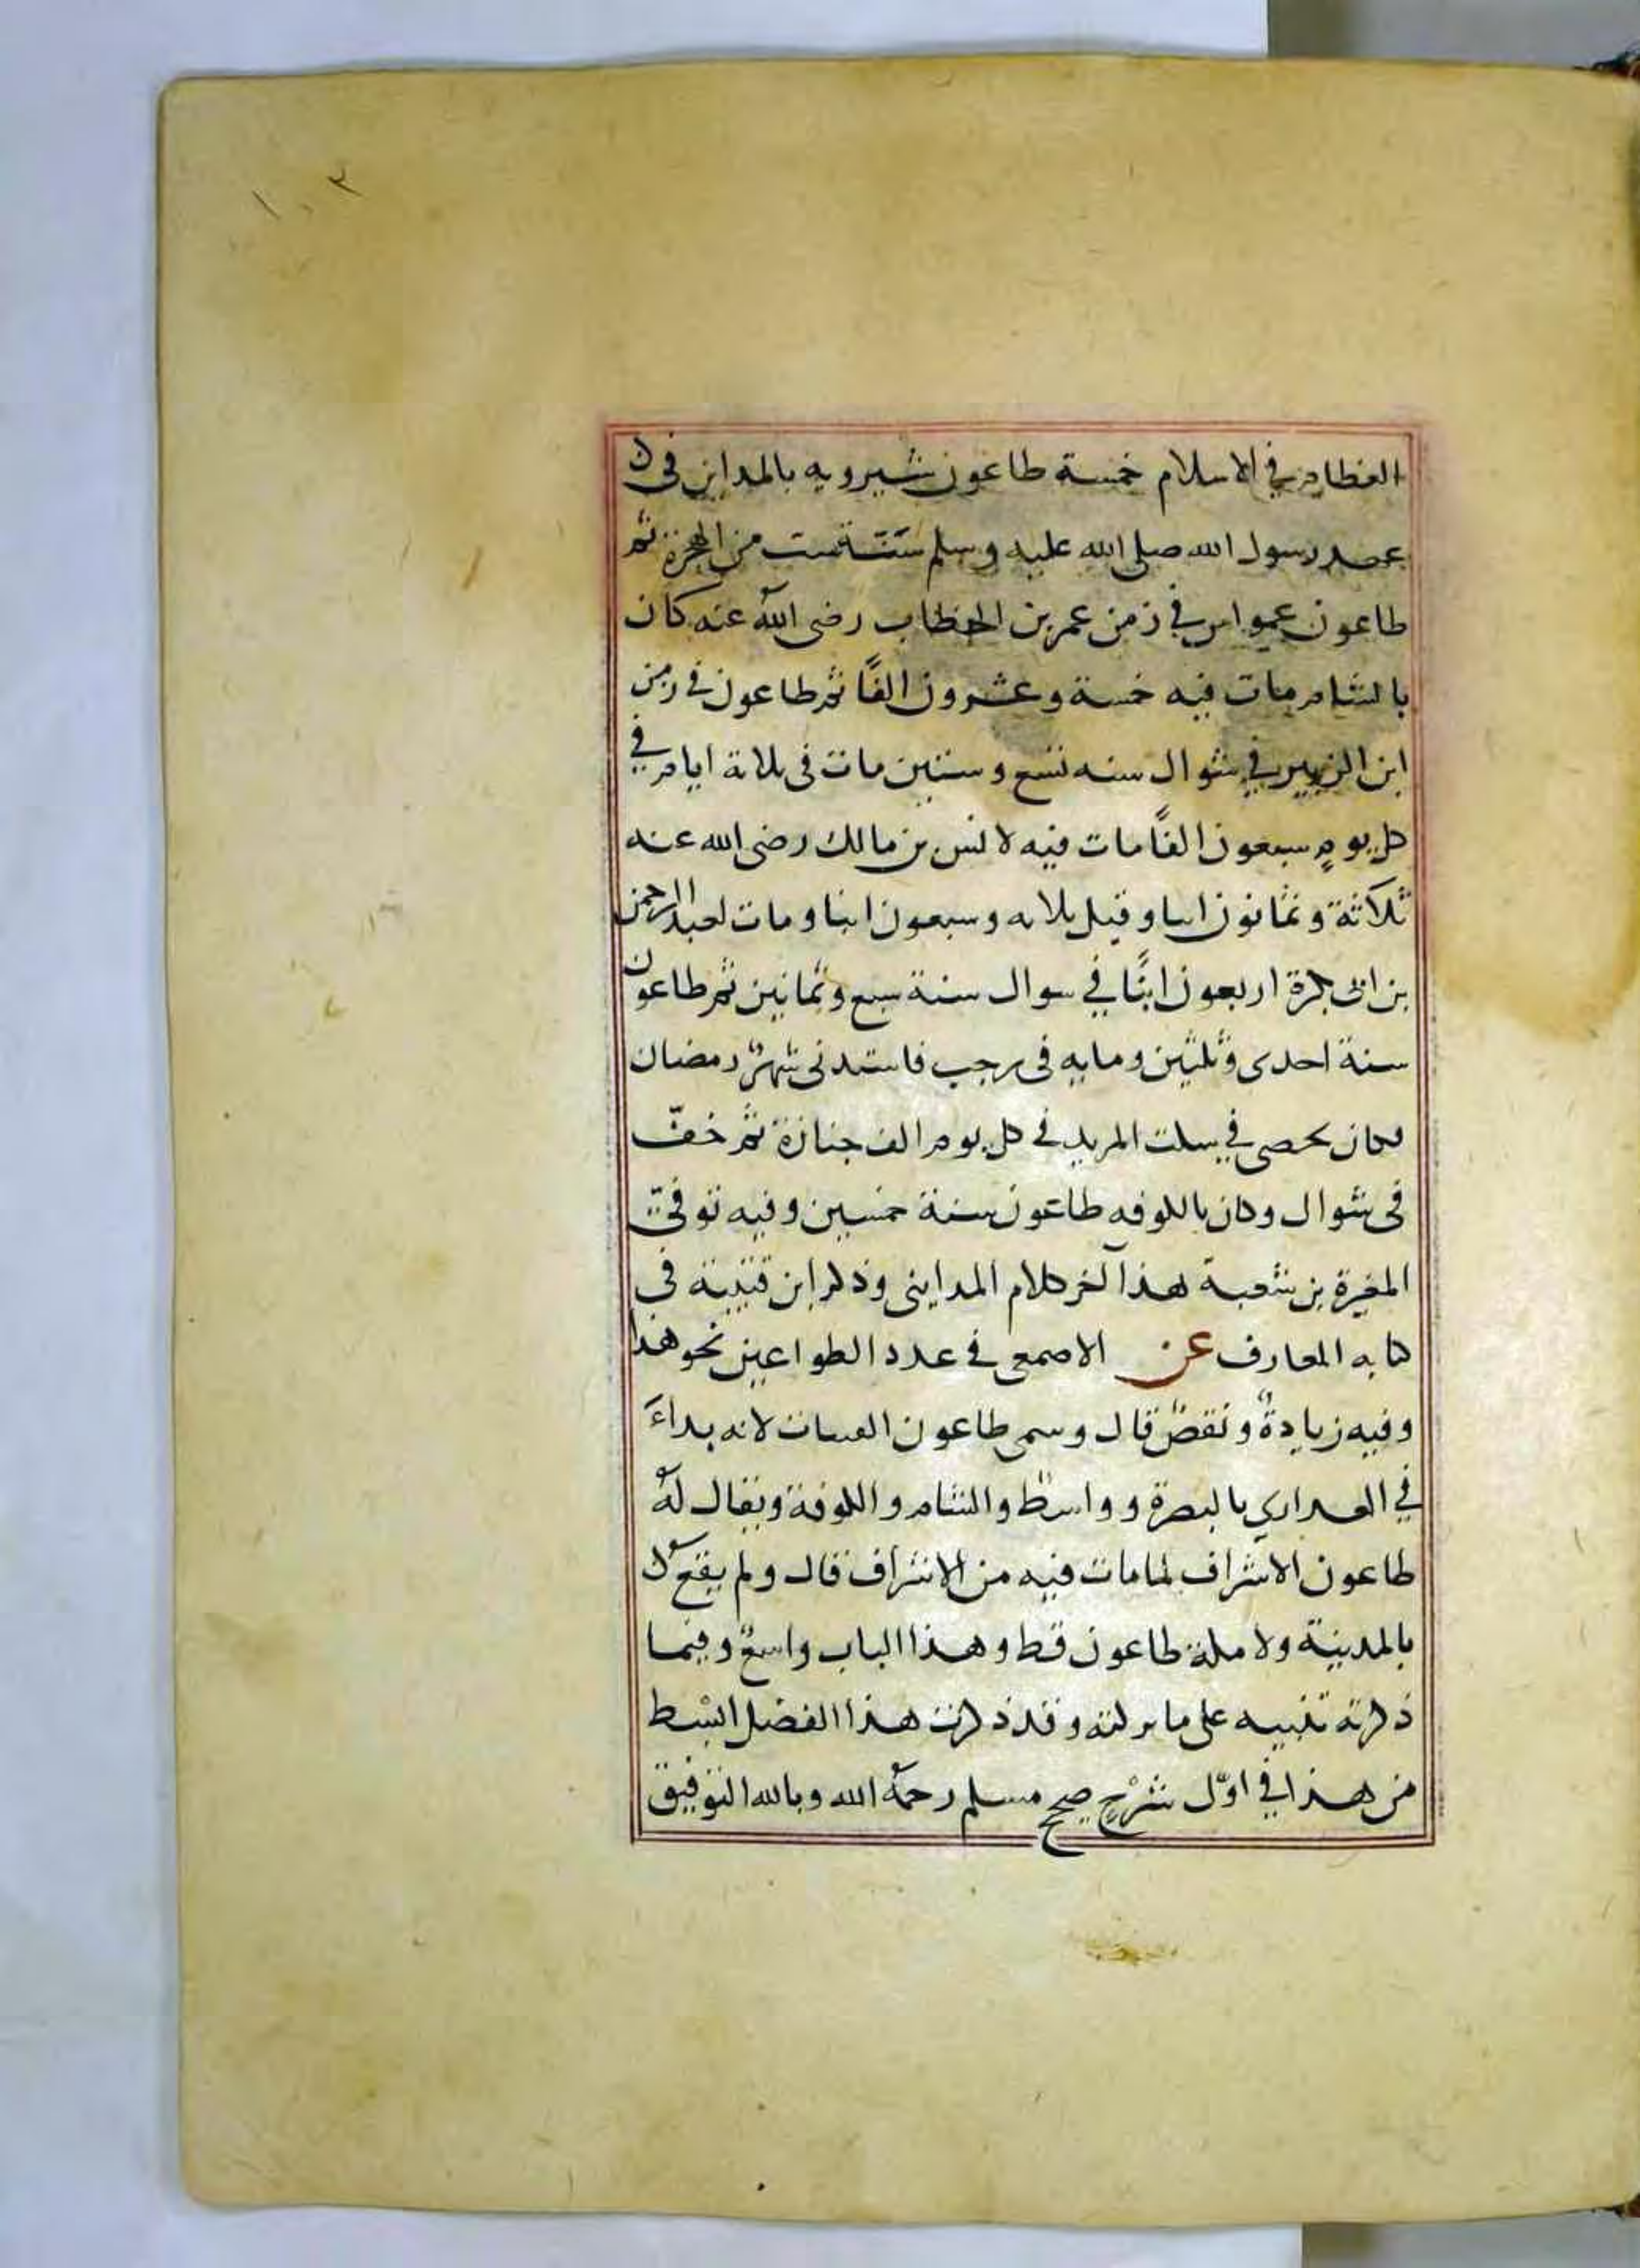 ١٠٣
العظام في الاسلام خمسة طاعون شيرويه بالمداين في
عهد رسول الله صلى الله عليه وسلم سَنَة ست من الهجرة ثم
طاعون عمواس في زمن عمر بن الخطاب رضى الله عنه كان
بالشام مات فيه خمسة وعشرون الفًا ثم طاعون في زمن
ابن الزبير في شوال سنه تسع وستين مات في ثلاثة ايام في
كل يومٍ سبعون الفًا مات فيه لانس بن مالك رضى الله عنه
ثلاثة وثمانون ابنا وقيل ثلاثه وسبعون ابنا ومات لعبد الرحمن
بن ابي بكرة اربعون ابنًا في سوال سنة سبع وثمانين ثم طاعون
سنة احدى وثلثين ومايه في رجب فاشتد في شهر رمضان
فكان يحصى في سكت المربد في كل يوم الف جنازة ثم خفّ
في شوال وكان بالكوفه طاعون سنة خمسين وفيه توفيّ
المغيرة بن شعبة هذا آخر كلام المدايني وذكر ابن قتيبة في
كتابه المعارف عن الاصمعي في عدد الطواعين نحو هذا
وفيه زيادةٌ ونقصٌ قال وسمى طاعون الفتيات لانه بداءَ
في العذاري بالبصرة وواسط والشام والكوفة ويقال لهُ
طاعون الاشراف لما مات فيه من الاشراف قال ولم يقع
بالمدينة ولا مكة طاعون قط وهذا الباب واسعٌ وفيما
ذكرته تنبيه على ما تركته وقد ذكرت هذا الفصل ابْسط
من هذا في اوّل شرْح صحيح مسلم رحمهُ الله وبالله التوفيق